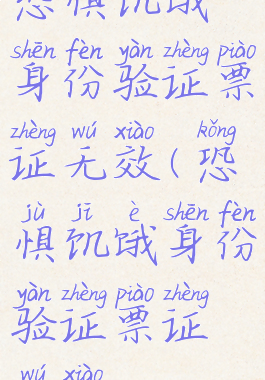 恐惧饥饿
shēn fèn yàn zhèng piào
身份验证票
zhèng wú xiào kǒng
证无效(恐
jù jī è shēn fèn
惧饥饿身份
yàn zhèng piào zhèng
验证票证
wú xiào